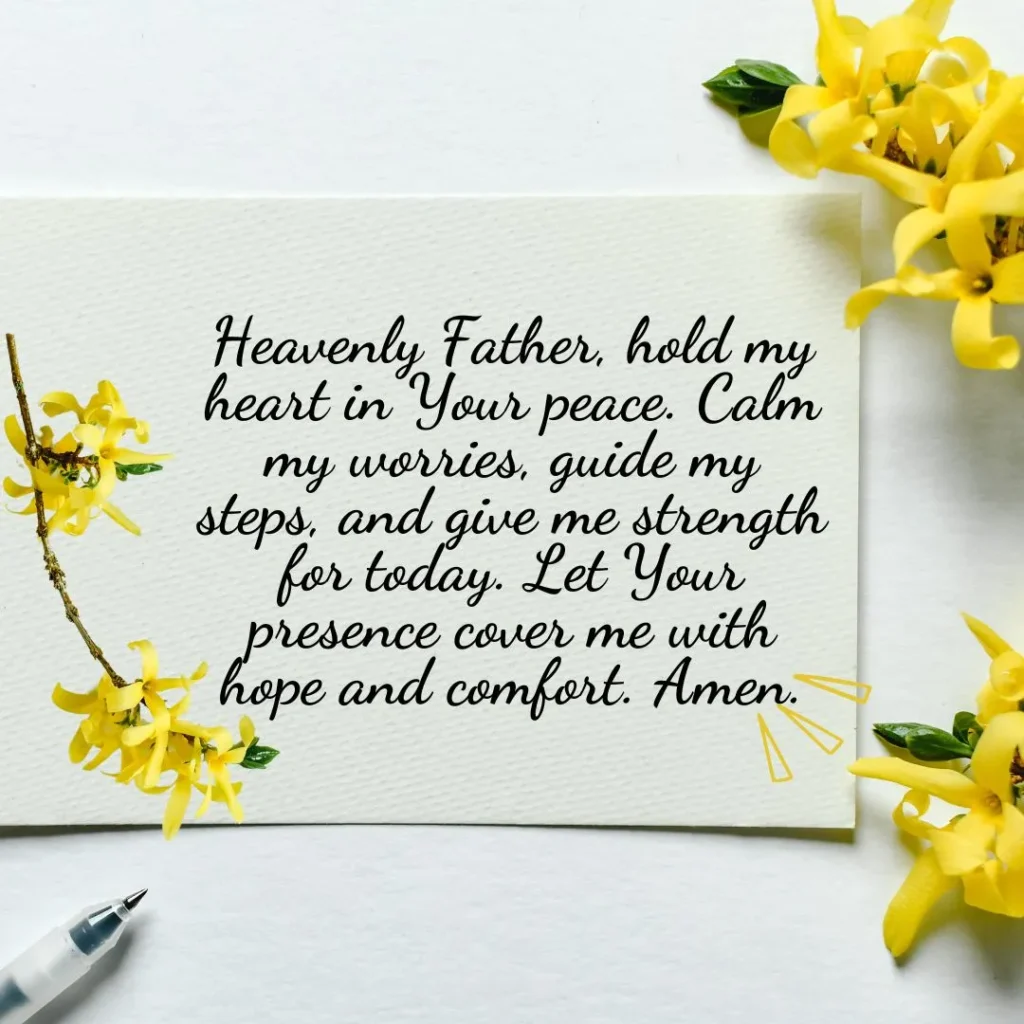 Heavenly Father, hold my
heart in Your peace. Calm
my worries, guide my
steps, and give me strength
for today. Let Your
presence cover me with
hope and comfort. Amen.